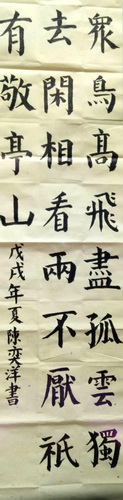 眾鳥高飛盡孤雲獨
去閑相看兩不厭祇
有敬亭山
戊戌年夏陳奕洋書